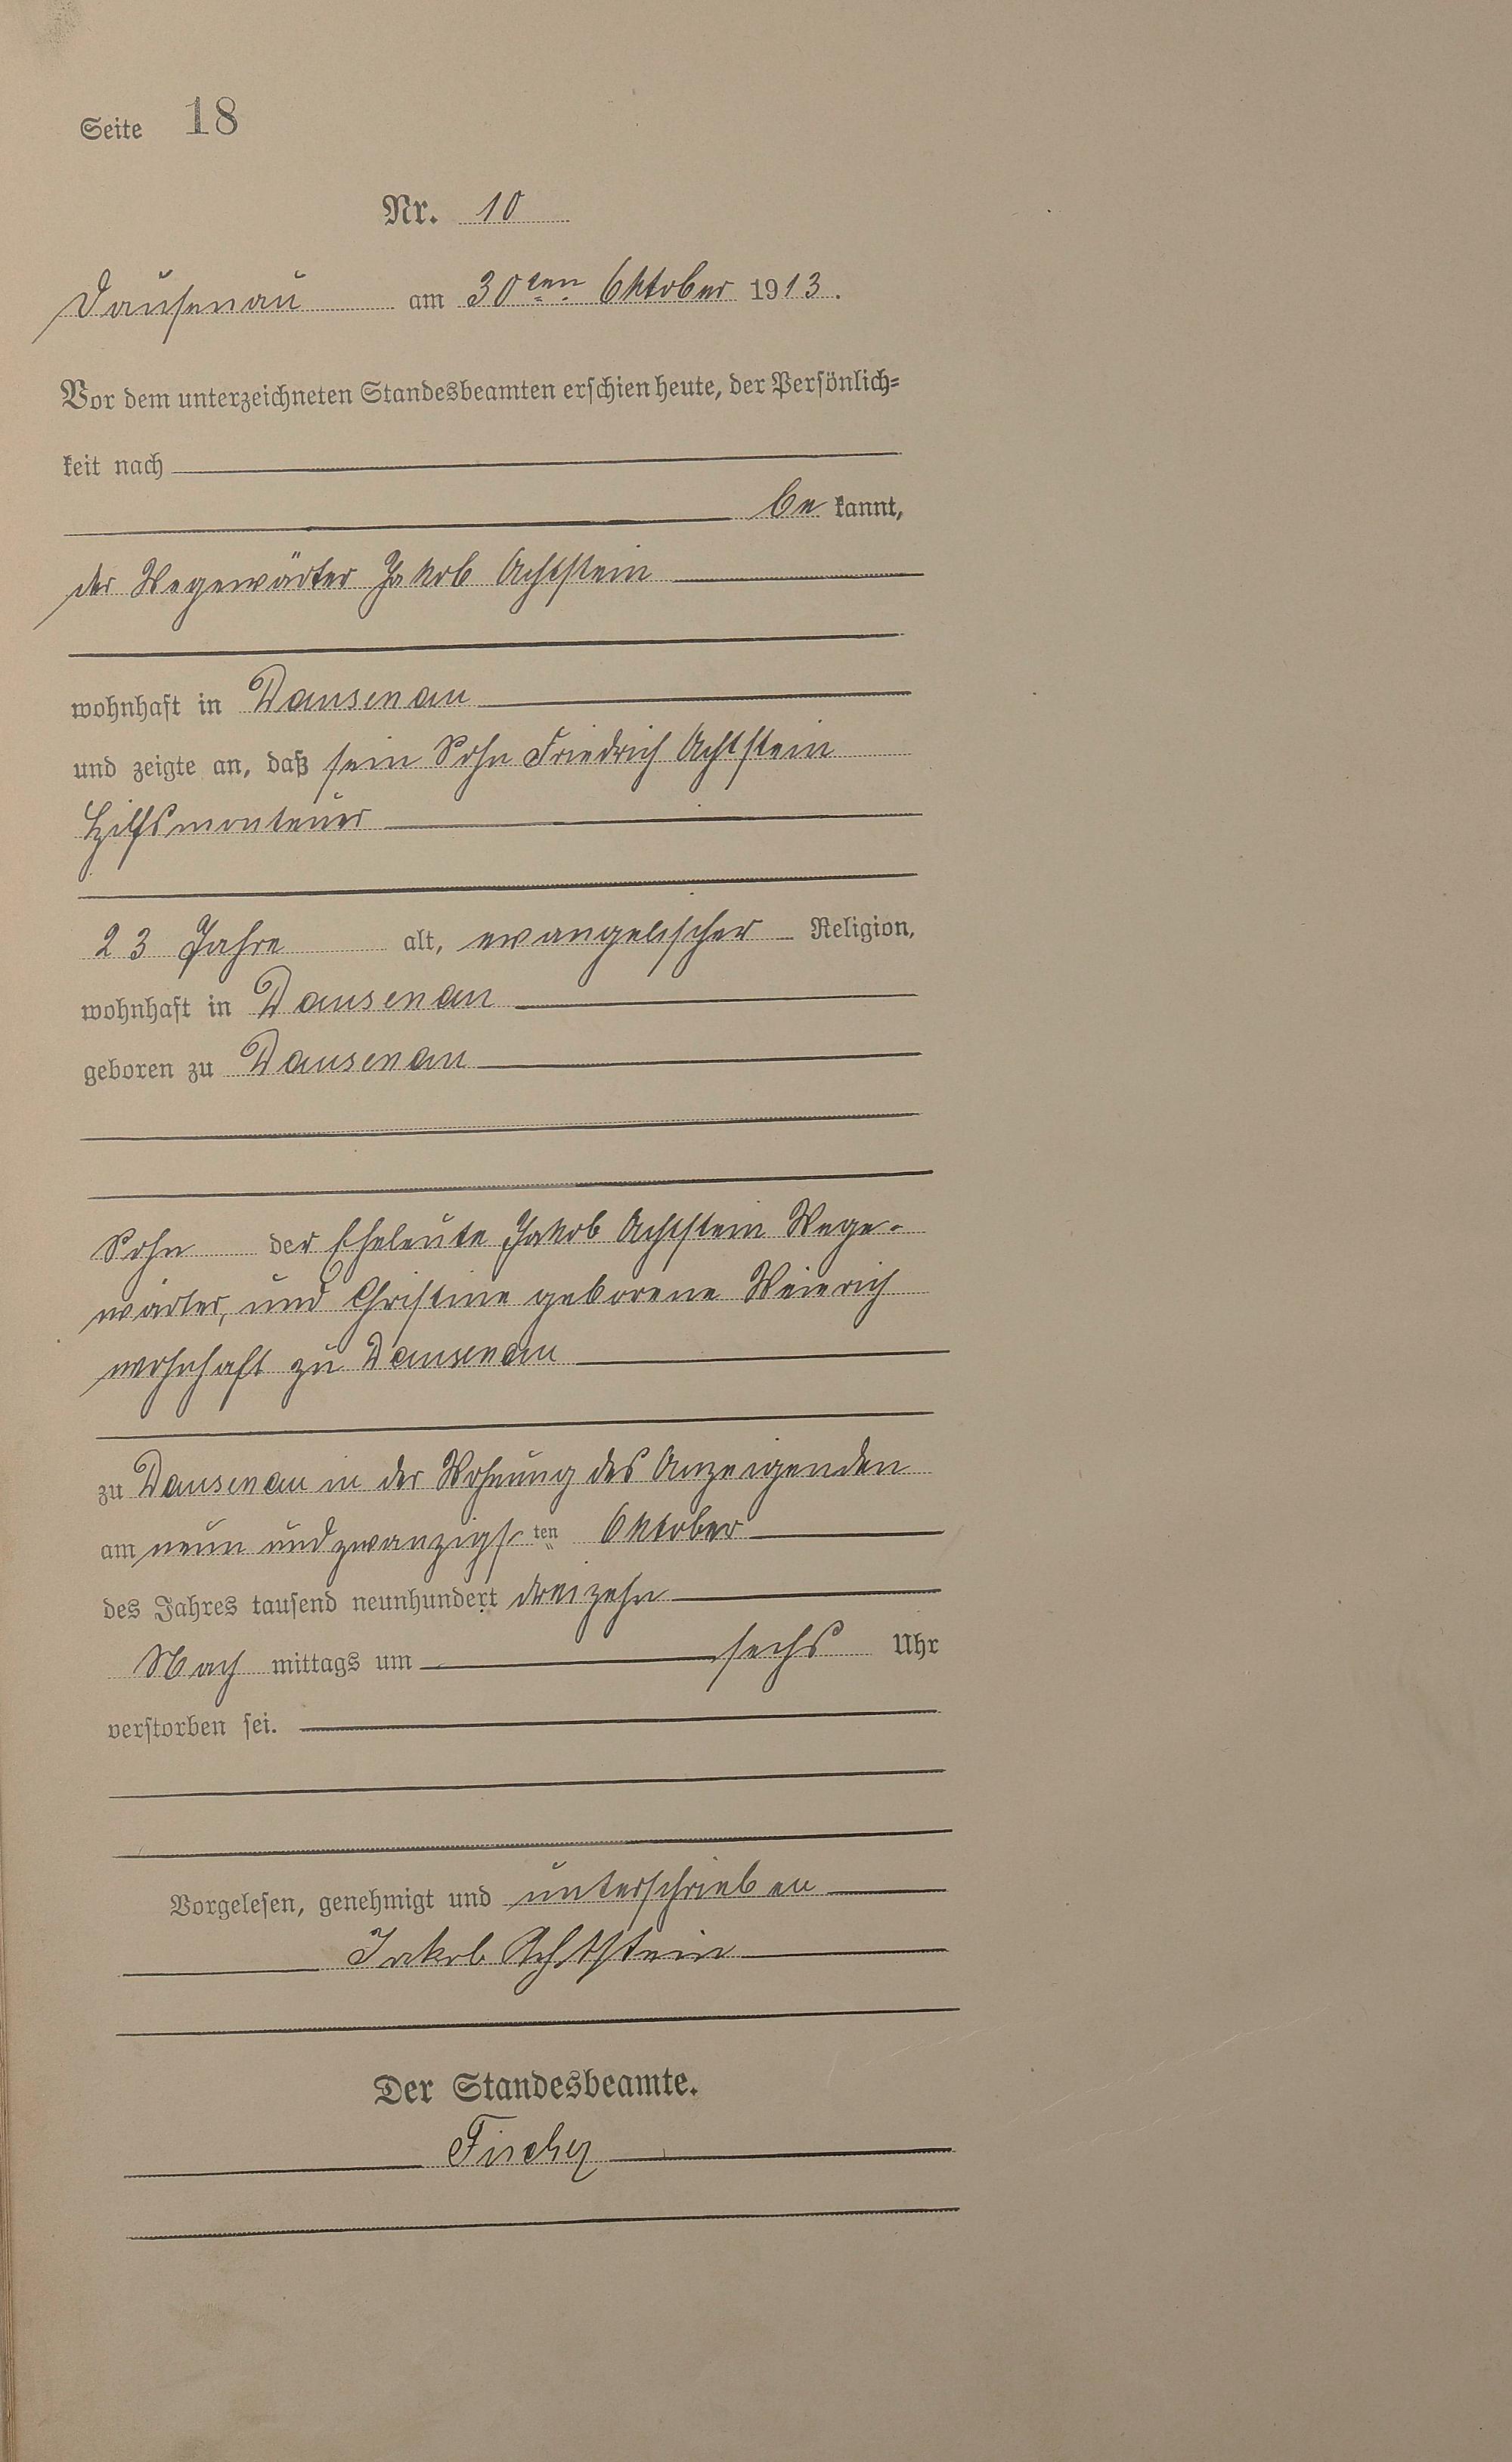 Seite 18
Nr. 10
Dausenau am 30ten Oktober 1913.
Vor dem unterzeichneten Standesbeamten erschien heute, der Persönlich-
keit nach
be kannt,
der Wegewärter Jakob Achtstein
wohnhaft in Dausenau
und zeigte an, daß sein Sohn Friedrich Achtstein
Hilfsmonteur
23 Jahre alt, evangelischer Religion,
wohnhaft in Dausenau
geboren zu Dausenau
Sohn der Eheleute Jakob Achtstein Wege-
wärter, und Christine geborene Weierich
wohnhaft zu Dausenau
zu Dausenau in der Wohnung des Anzeigenden
am neun und zwanzigsten Oktober
des Jahres tausend neunhundert dreizehn
Nach mittags um sechs Uhr
verstorben sei.
Vorgelesen, genehmigt und unterschrieben
Jakob Achtstein
Der Standesbeamte.
Fischer